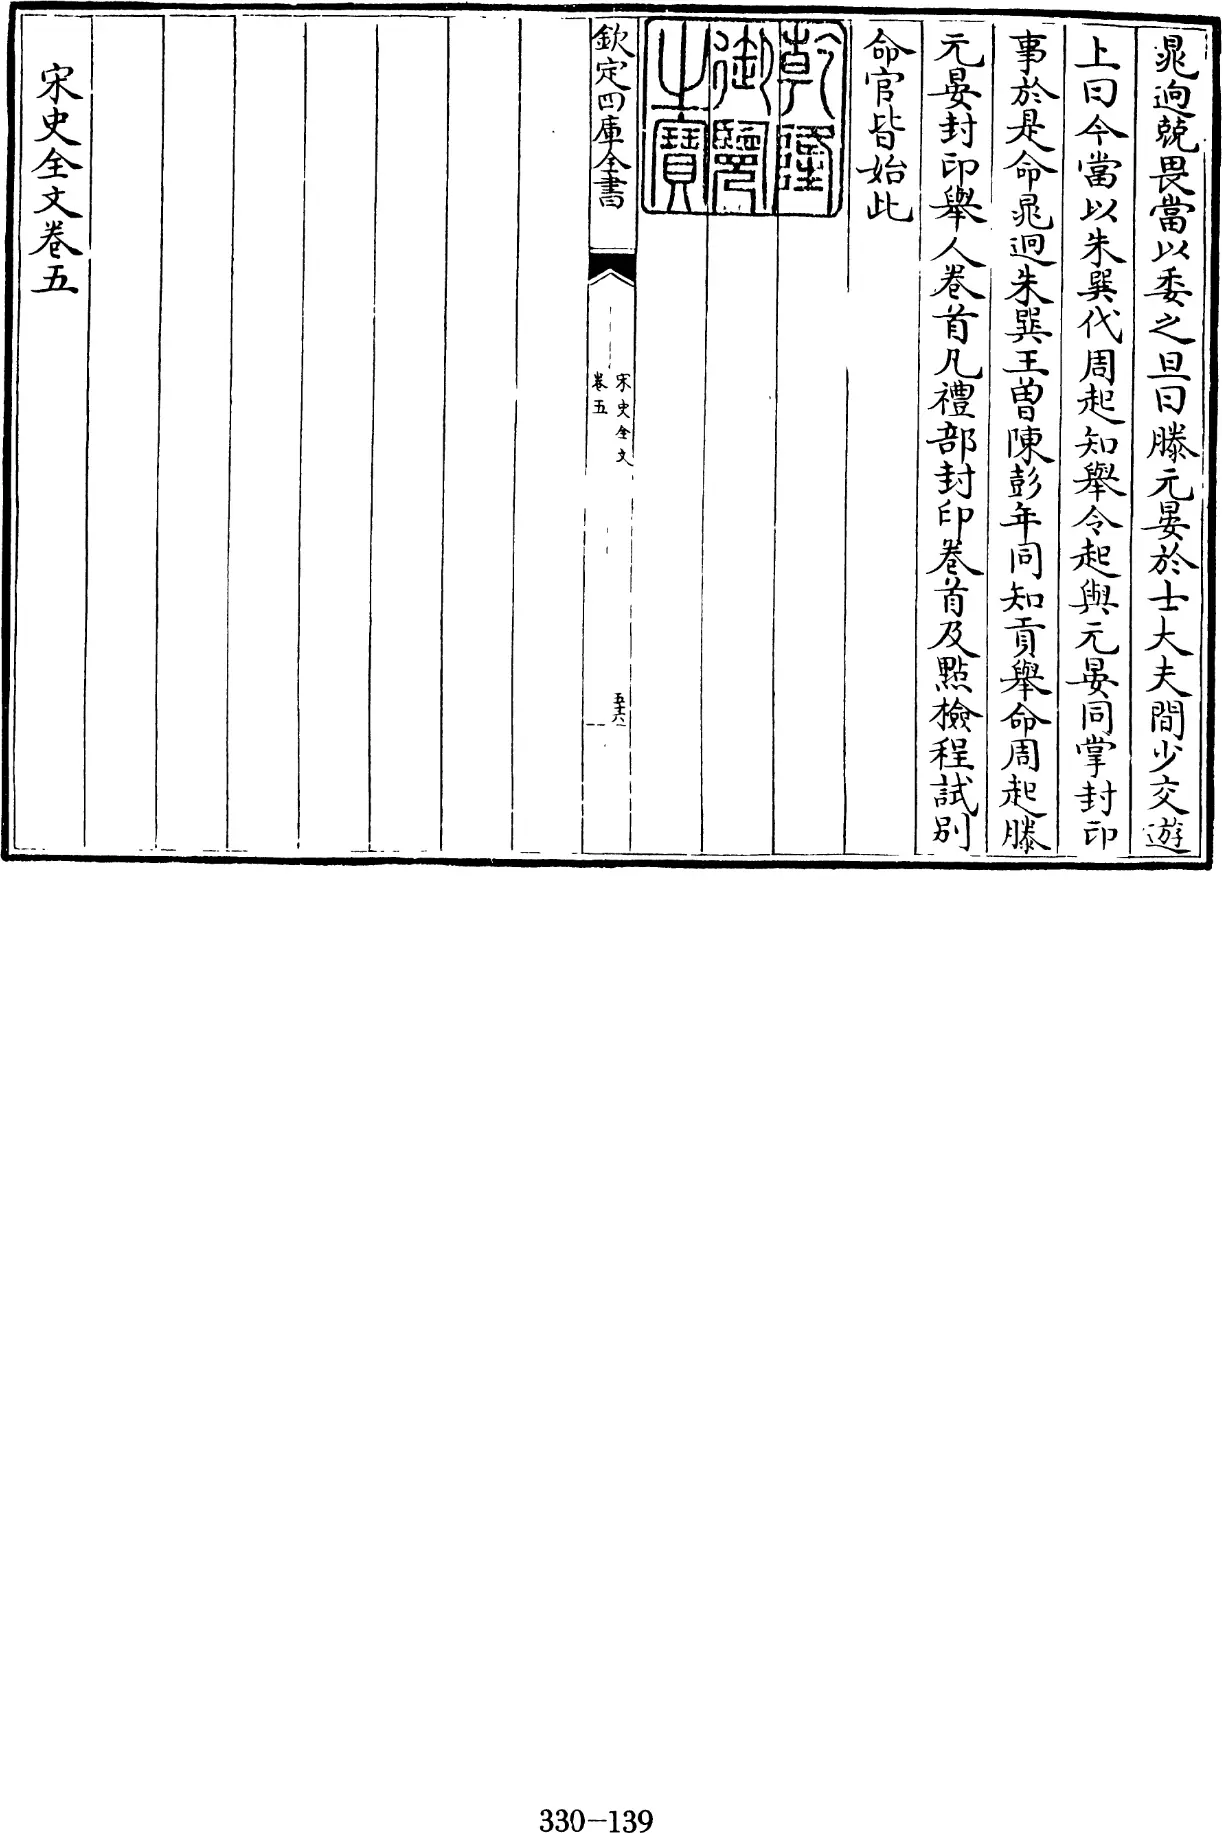 晁迥兢畏當以委之旦曰滕元晏於士大夫間少交遊
上曰今當以朱巽代周起知舉令起與元晏同掌封印
事於是命晁迥朱巽王曾陳彭年同知貢舉命周起滕
元晏封印舉人卷首凡禮部封印卷首及點檢程試別
命官皆始此
乾隆
御覽
之寶
欽定四庫全書
宋史全文
卷五
五十六
宋史全文卷五
330-139